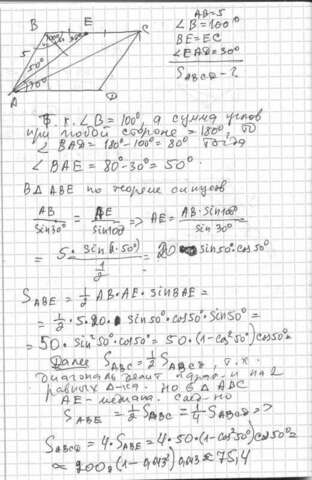 AB=5
∠B=100°
BE=EC
∠EAD=30°
S_ABCD - ?
B E C
5 100° 30°
50°
30°
A D
Т. к. ∠B=100°, а сумма углов
при любой стороне =180°, то
∠BAD=180°-100°=80° тогда
∠BAE=80°-30°=50°.
В Δ ABE по теореме синусов
AB/Sin30° = AE/Sin100 => AE = AB·Sin100°/Sin 30° =
= 5·Sin(2·50°)/(1/2) = 20 sin50°·cos50°
S_ABE = 1/2 AB·AE·SinBAE =
= 1/2·5·20· sin50°·cos50°·sin50° =
= 50·Sin²50°·cos50° = 50·(1-cos²50°)cos50°
Далее S_ABC = 1/2 S_ABCD, т.к.
диагональ делит на 2
равных Δ-ка. Но в Δ
AE-медиана.
S_ABE = 1/2 S_ABC = 1/4 S_ABCD =>
S_ABCD = 4·S_ABE = 4·50(1-cos²50°)cos50° =
≈ 200·(1-0,643²)0,643 ≈ 75,4